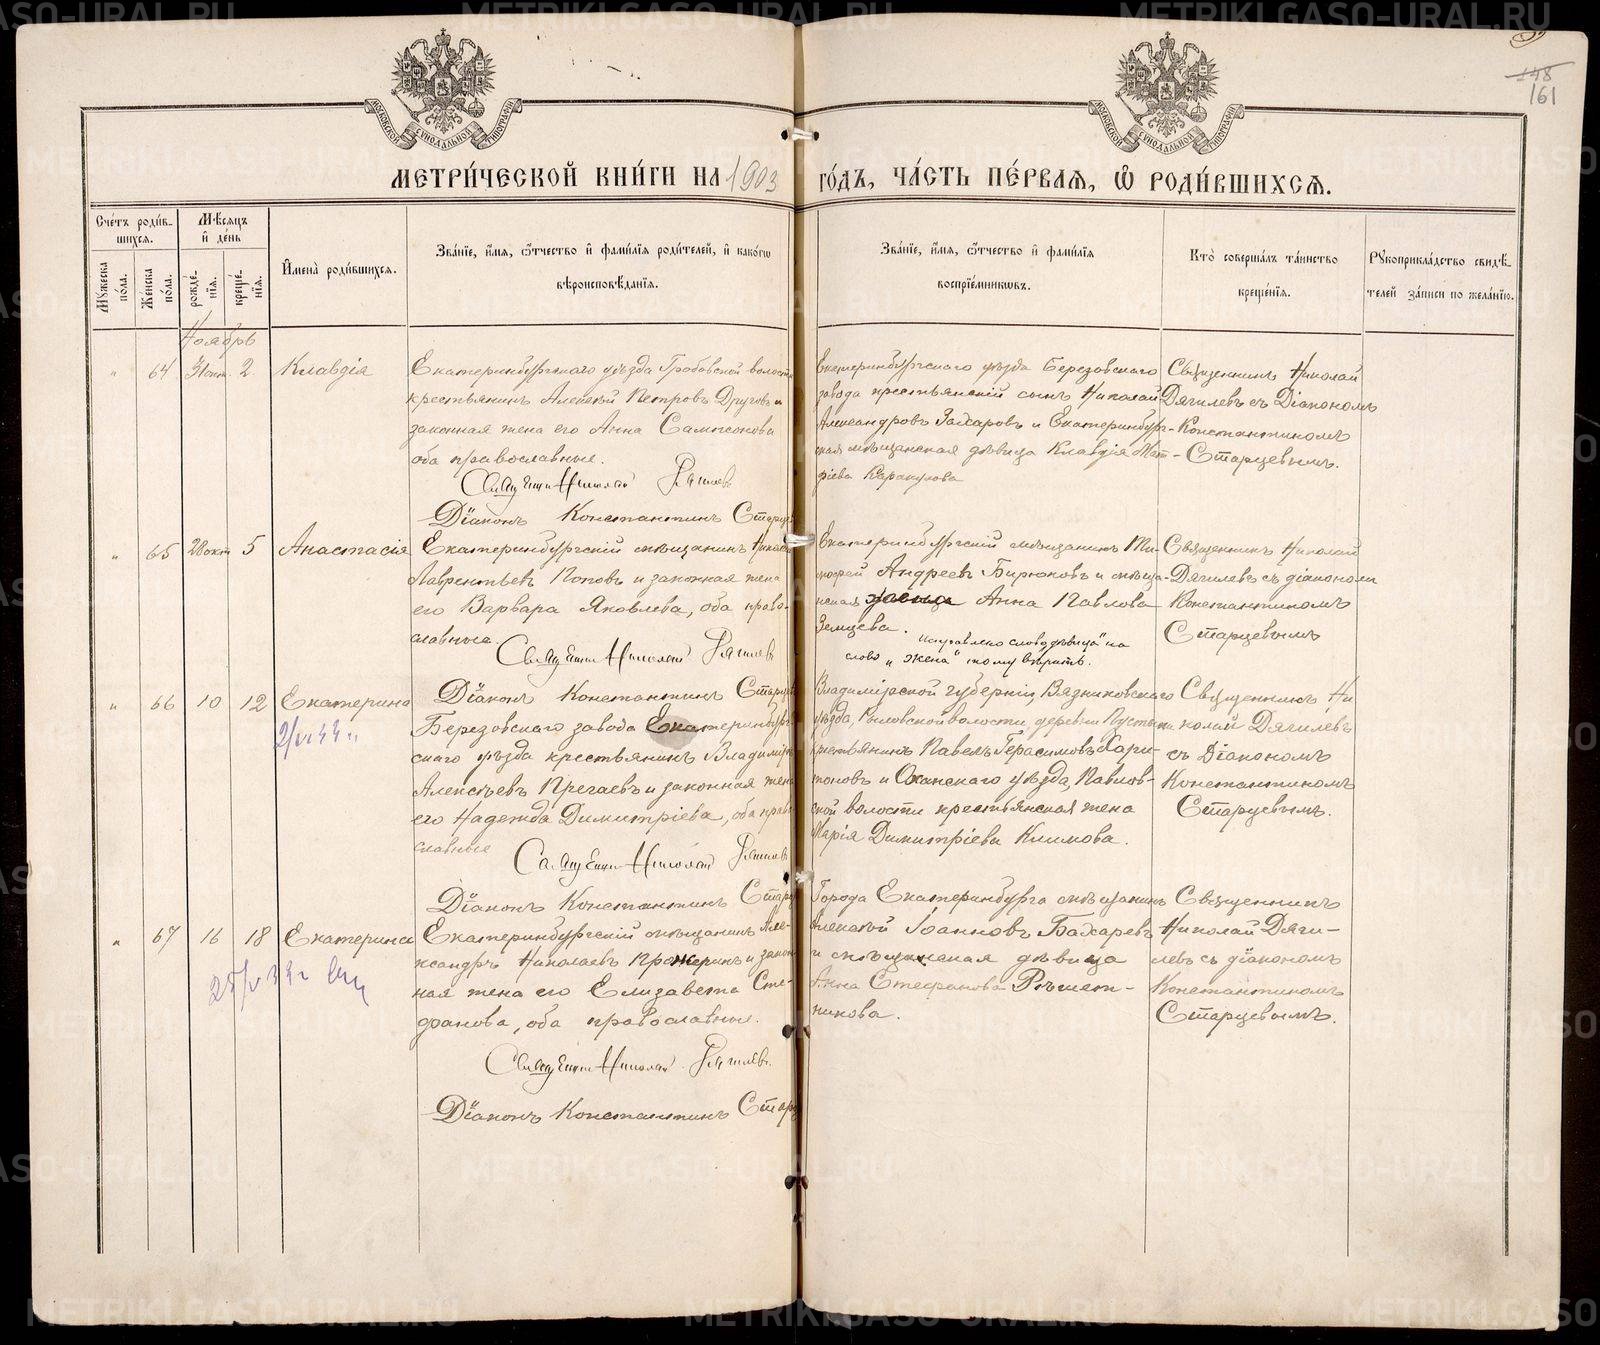 148
161
МОСКОВСКОЙ СѴНОДАЛЬНОЙ ТИПОГРАФІИ
МОСКОВСКОЙ СѴНОДАЛЬНОЙ ТИПОГРАФІИ
МЕТРИ́ЧЕСКОЙ КНИ́ГИ НА 1903 ГО́ДЪ, ЧА́СТЬ ПЕ́РВАЯ, Ѡ РОДИ́ВШИХСЯ.
Сче́тъ роди́в-
шихся.
Му́жеска по́ла.
Же́нска по́ла.
Мѣ́сяцъ
и де́нь
рожде́-
нїя.
креще́-
нїя.
Имена̀ роди́вшихся.
Зва́нїе, и́мя, ѻ́тчество и фами́лїя роди́телей, и како́гѡ
вѣроисповѣ́данїя.
Зва́нїе, и́мя, ѻ́тчество и фами́лїя
воспрїе́мникѡвъ.
Кто̀ соверша́лъ та́инство
креще́нїя.
Рꙋкоприкла́дство свидѣ́-
телей за́писи по жела́нїю.
Ноябрь
" 64 31 окт. 2 Клавдія
Екатеринбургскаго уѣзда Гробовской волости
крестьянинъ Алексѣй Петровъ Друговъ и
законная жена его Анна Сампсонова
оба православные.
Священникъ Николай Дягилевъ
Діаконъ Константинъ Старцевъ
Екатеринбургскаго уѣзда Березовскаго
завода крестьянскій сынъ Николай
Александровъ Захаровъ и Екатеринбург-
ская мѣщанская дѣвица Клавдія Мат-
фіева
Священникъ Николай
Дягилевъ съ Діакономъ
Константиномъ
Старцевымъ.
" 65 28 окт 5 Анастасія
Екатеринбургскій мѣщанинъ Николай
Лаврентьевъ Поповъ и законная жена
его Варвара Яковлева, оба право-
славные.
Священникъ Николай Дягилевъ
Діаконъ Константинъ Старцевъ
Екатеринбургскій мѣщанинъ Ти-
мофей Андреевъ Бирюковъ и мѣща-
нская дѣвица Анна Павлова
Земцева. исправлено слово „дѣвица" на
слово „жена" тому вѣрить.
Священникъ Николай
Дягилевъ съ діакономъ
Константиномъ
Старцевымъ
" 66 10 12 Екатерина
Березовскаго завода Екатеринбург-
скаго уѣзда крестьянинъ Владиміръ
Алексѣевъ Пречаевъ и законная жена
его Надежда Димитріева, оба право-
славные
Священникъ Николай Дягилевъ
Діаконъ Константинъ Старцевъ
Владимірской губерніи, Вязниковскаго
уѣзда, волости, деревни
крестьянинъ Павелъ Герасимовъ Хари-
тоновъ и Оханскаго уѣзда, Павлов-
ской волости крестьянская жена
Марія Димитріева Климова.
Священникъ Ни
колай Дягилевъ
съ Діакономъ
Константиномъ
Старцевымъ.
" 67 16 18 Екатерина
Екатеринбургскій мѣщанинъ Але-
ксандръ Николаевъ и закон-
ная жена его Елизавета Сте-
фанова, оба православные.
Священникъ Николай Дягилевъ.
Діаконъ Константинъ Старц
Города Екатеринбурга мѣщанинъ
Алексѣй Іоанновъ Бахаревъ
и мѣщанская дѣвица
Анна Стефанова Рѣшет-
никова.
Священникъ
Николай Дяги-
левъ съ діакономъ
Константиномъ
Старцевымъ.
METRIKI.GASO-URAL.RU